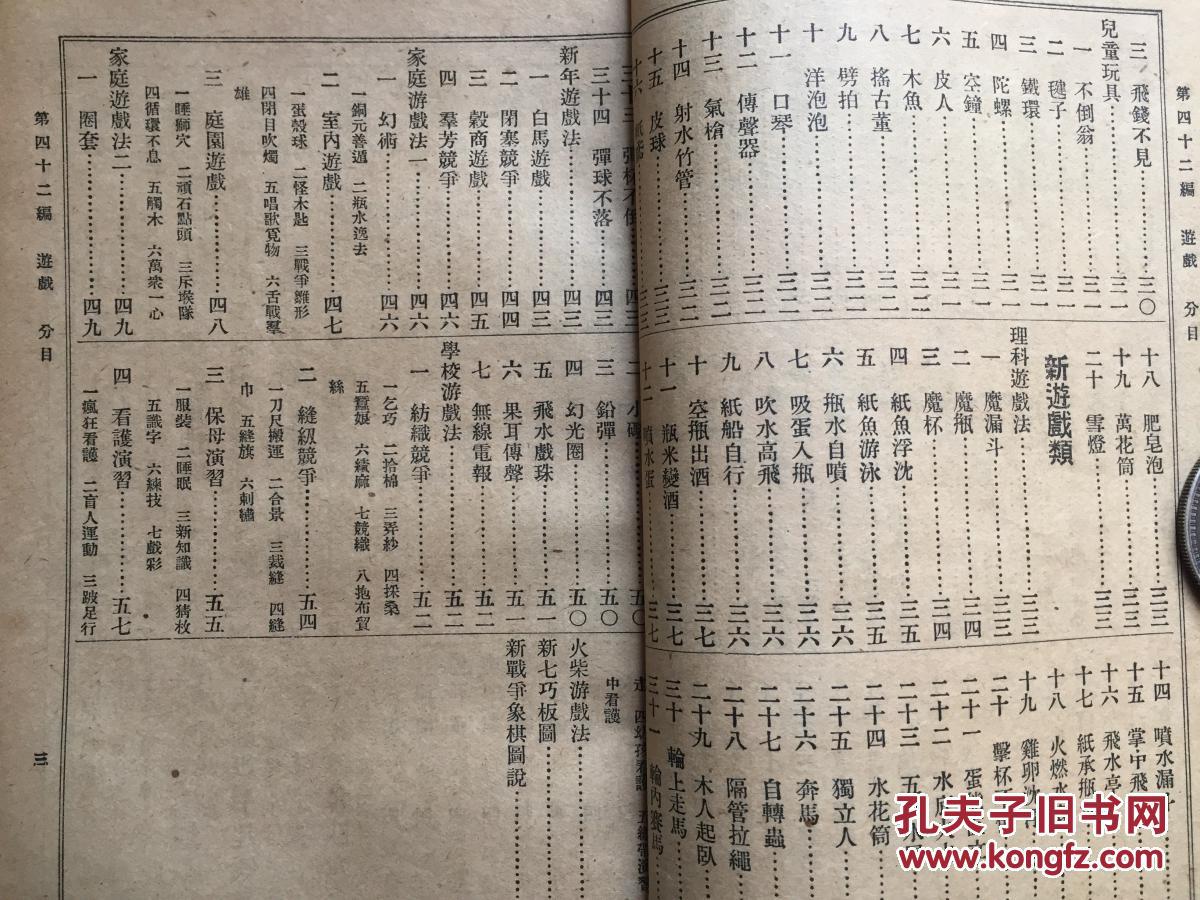 第四十二編　遊戲　分目
三　飛錢不見…三〇
兒童玩具…三一
一　不倒翁…三一
二　毽子…三一
三　鐵環…三一
四　陀螺…三一
五　空鐘…三一
六　皮人…三一
七　木魚…三二
八　搖古董…三二
九　劈拍…三二
十　洋泡泡…三二
十一　口琴…三二
十二　傳聲器…三二
十三　氣槍…三二
十四　射水竹管…三二
十五　皮球…三三
十六
十八　肥皂泡…三三
十九　萬花筒…三三
二十　雪燈…三三
新遊戲類
理科遊戲法…三三
一　魔漏斗…三三
二　魔瓶…三四
三　魔杯…三四
四　紙魚浮沈…三五
五　紙魚游泳…三五
六　瓶水自噴…三六
七　吸蛋入瓶…三六
八　吹水高飛…三六
九　紙船自行…三六
十　空瓶出酒…三七
十一　瓶米變酒…三七
十二　噴水蛋…三七
十四　噴水漏
十五　掌中飛
十六　飛水亭
十七　紙承瓶
十八　火燃水
十九　雞卵沈
二十　擊杯
二十一　蛋
二十二　水底
二十三　五
二十四　水花筒
二十五　獨立人
二十六　奔馬
二十七　自轉蟲
二十八　隔管拉繩
二十九　木人起臥
三十　輪上走馬
三十一　輪內賽馬
三十三　彈杯不倒…四三
三十四　彈球不落…四三
新年遊戲法…四三
一　白馬遊戲…四三
二　閉塞競爭…四四
三　穀商遊戲…四五
四　羣芳競爭…四六
家庭游戲法一…四六
一　幻術…四六
一銅元善遁　二瓶水逸去
二　室內遊戲…四七
一蛋殼球　二怪木匙　三戰爭雛形
四閉目吹燭　五唱歌覓物　六舌戰羣
雄
三　庭園遊戲…四八
一睡獅穴　二頑石點頭　三斥堠隊
四循環不息　五觸木　六萬衆一心
家庭遊戲法二…四九
一　圈套…四九
二　小磚…五〇
三　鉛彈…五〇
四　幻光圈…五〇
五　飛水戲珠…五一
六　果耳傳聲…五一
七　無線電報…五二
學校游戲法…五二
一　紡織競爭…五二
一乞巧　二拾棉　三弄紗　四採桑
五蠶娘　六績麻　七競織　八抱布貿
絲
二　縫級競爭…五四
一刀尺搬運　二合景　三裁縫　四縫
巾　五縫旗　六刺繡
三　保母演習…五五
一服裝　二睡眠　三新知識　四猜枚
五識字　六練技　七戲彩
四　看護演習…五七
一瘋狂看護　二盲人運動　三跛足行
中看護
火柴游戲法
新七巧板圖
新戰爭象棋圖說
第四十二編　遊戲　分目
三
孔夫子旧书网
www.kongfz.com